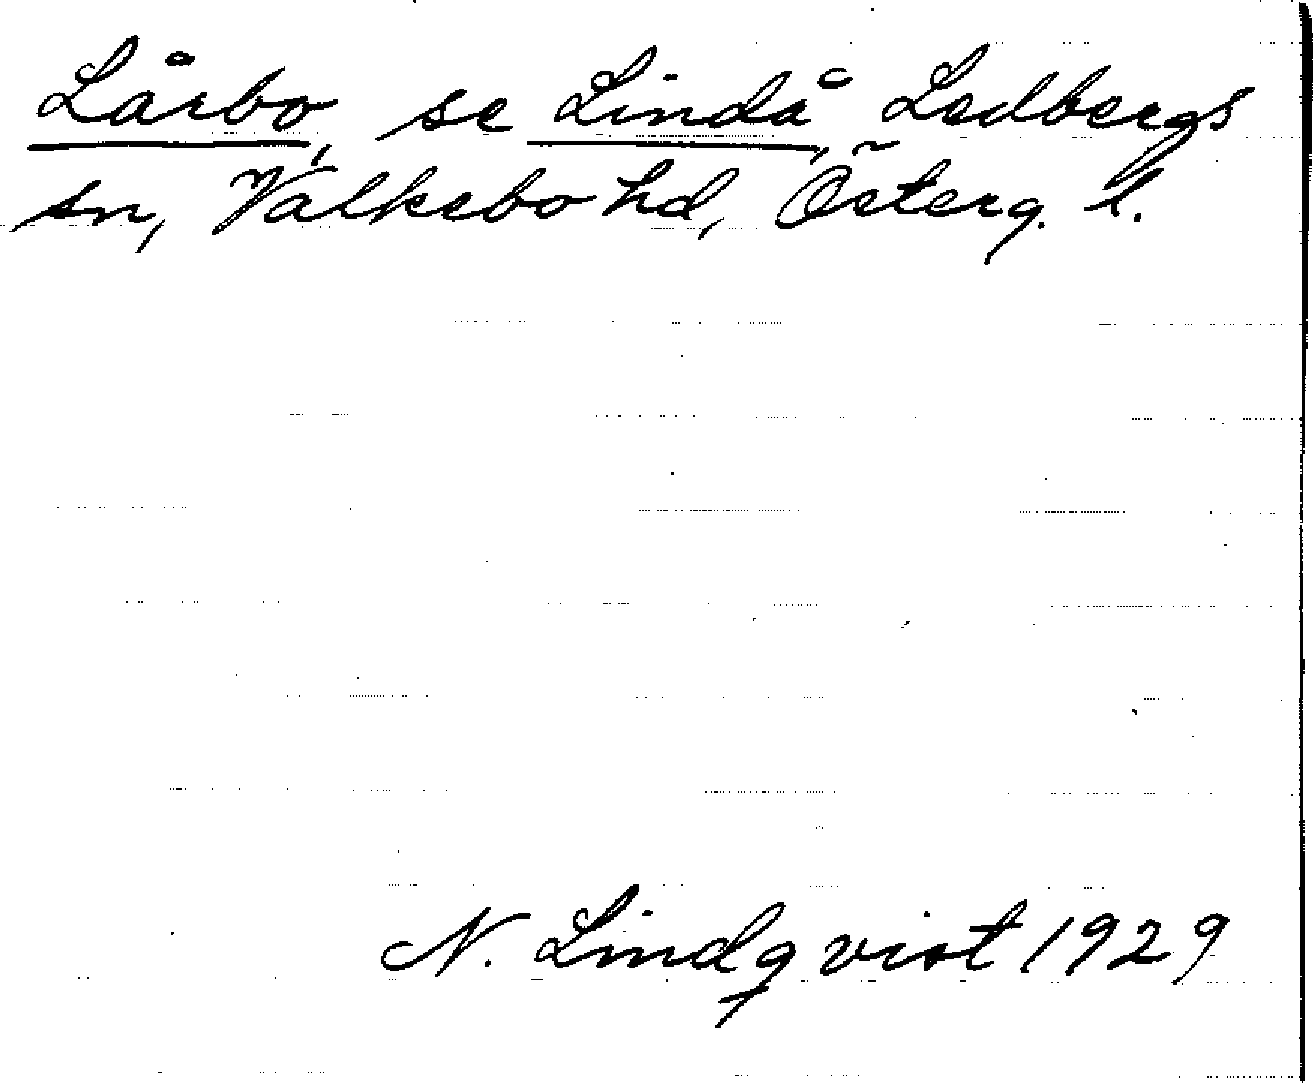 Lårbo, se Lindå, Ledbergs
sn, Valkebo hd, Österg. l.
N. Lindqvist 1929